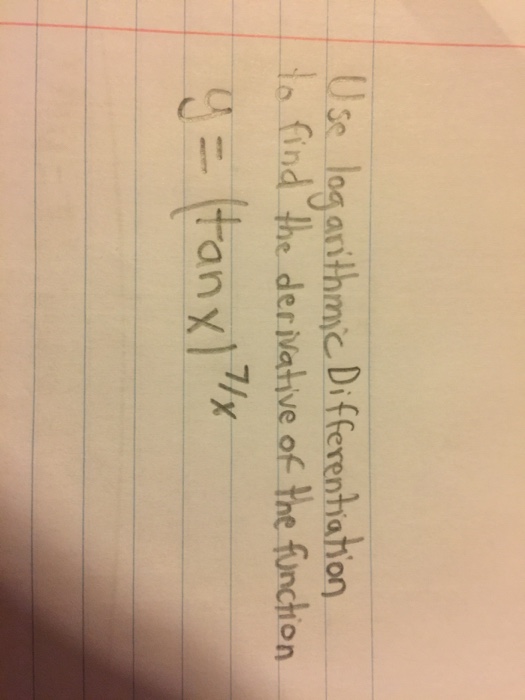 Use logarithmic Differentiation
to find the derivative of the function
y = (tan x)^7/x